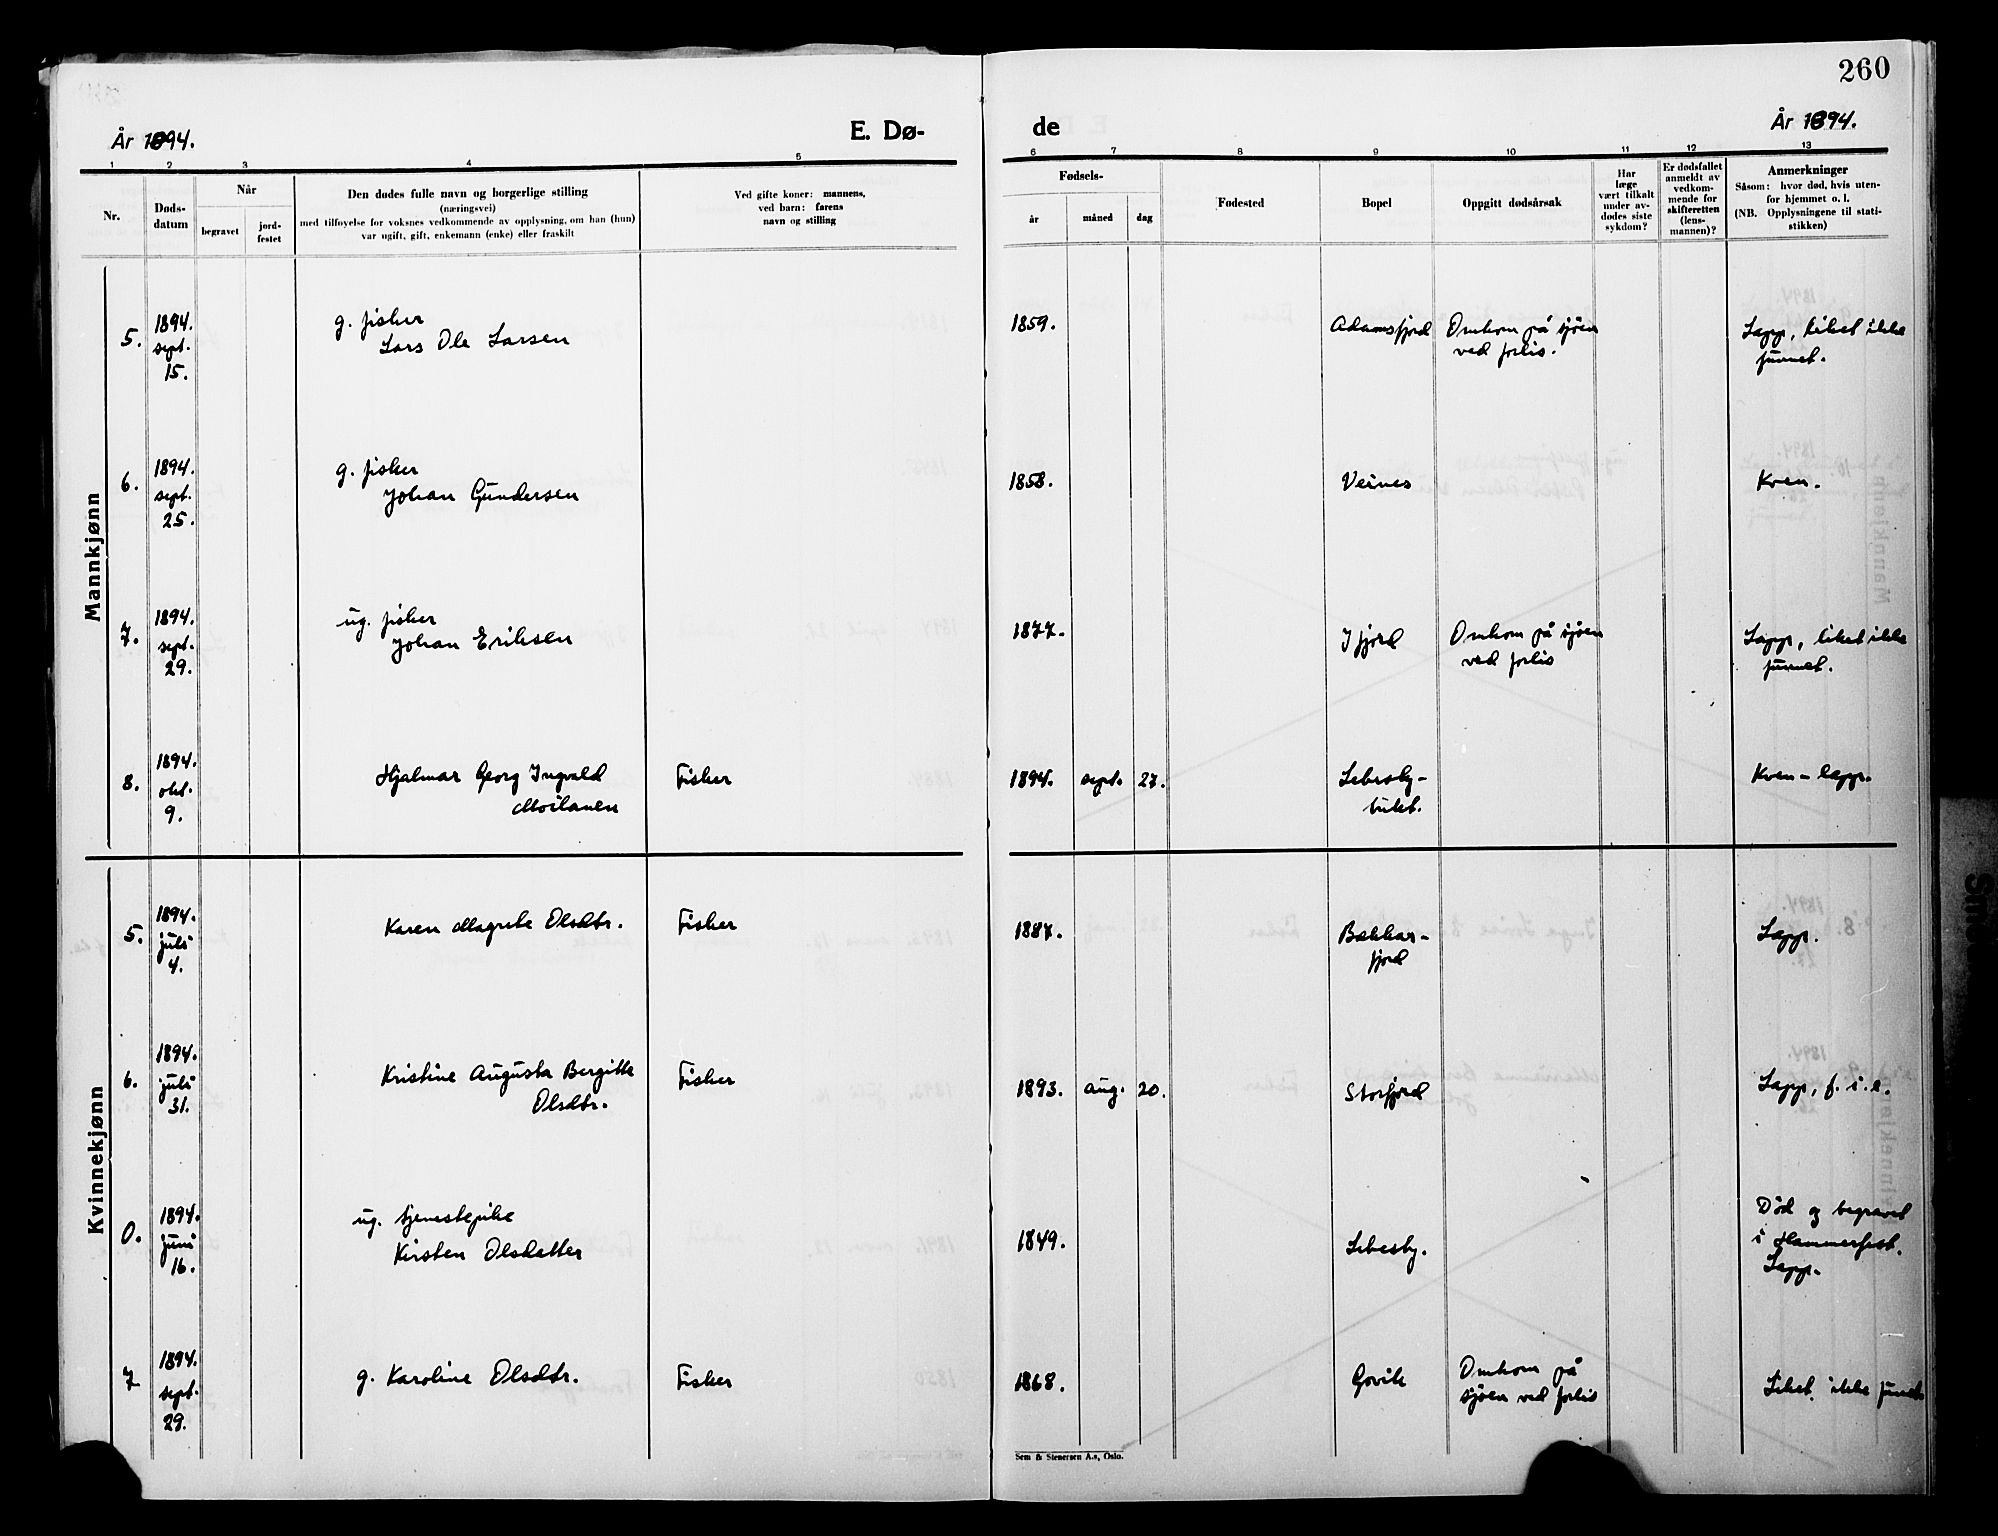 260
År 1894.
E. Dø-
de
År 1894.
1 2 3 4 5 6 7 8 9 10 11 12 13
Nr.
Døds-
datum
Når
begravet
jord-
festet
Den dødes fulle navn og borgerlige stilling
(næringsvei)
med tilføyelse for voksnes vedkommende av opplysning, om han (hun)
var ugift, gift, enkemann (enke) eller fraskilt
Ved gifte koner: mannens,
ved barn: farens
navn og stilling
Fødsels-
år
måned
dag
Fødested
Bopel
Oppgitt dødsårsak
Har
læge
vært tilkalt
under av-
dødes siste
sykdom?
Er dødsfallet
anmeldt av
vedkom-
mende for
skifteretten
(lens-
mannen)?
Anmerkninger
Såsom: hvor død, hvis uten-
for hjemmet o. l.
(NB. Opplysningene til stati-
stikken)
Mannkjønn
5.
1894.
sept.
15.
g. fisker
Lars Ole Larsen
1859.
Adamsfjord
Omkom på sjøen
ved forlis.
Lapp, liket ikke
funnet.
6.
1894.
sept.
25.
g. fisker
Johan Gundersen
1858.
Veines
Kven.
7.
1894.
sept.
29.
ug. fisker
Johan Eriksen
1877.
Ifjord
Omkom på sjøen
ved forlis
Lapp, liket ikke
funnet.
8.
1894.
okt.
9.
Hjalmar Georg Ingvald
Moilanen
Fisker
1894. sept. 27.
Lebesby-
Kven-lapp.
Kvinnekjønn
5.
1894.
juli
4.
Karen Magrete Olsdtr.
Fisker
1887.
Bekkar-
fjord
Lapp.
6.
1894.
juli
31.
Kristine Augusta Bergitte
Olsdtr.
Fisker
1893. aug. 20.
Storfjord
Lapp, f. i. e.
0.
1894.
juni
16.
ug. tjenestepike
Kirsten Olsdatter
1849.
Lebesby.
Død og begravet
i Hammerfest.
Lapp.
7
1894.
sept.
29.
g. Karoline Olsdtr.
Fisker
1868.
Govik
Omkom på
sjøen ved forlis
Liket ikke funnet
Sem & Stenersen A.s, Oslo.